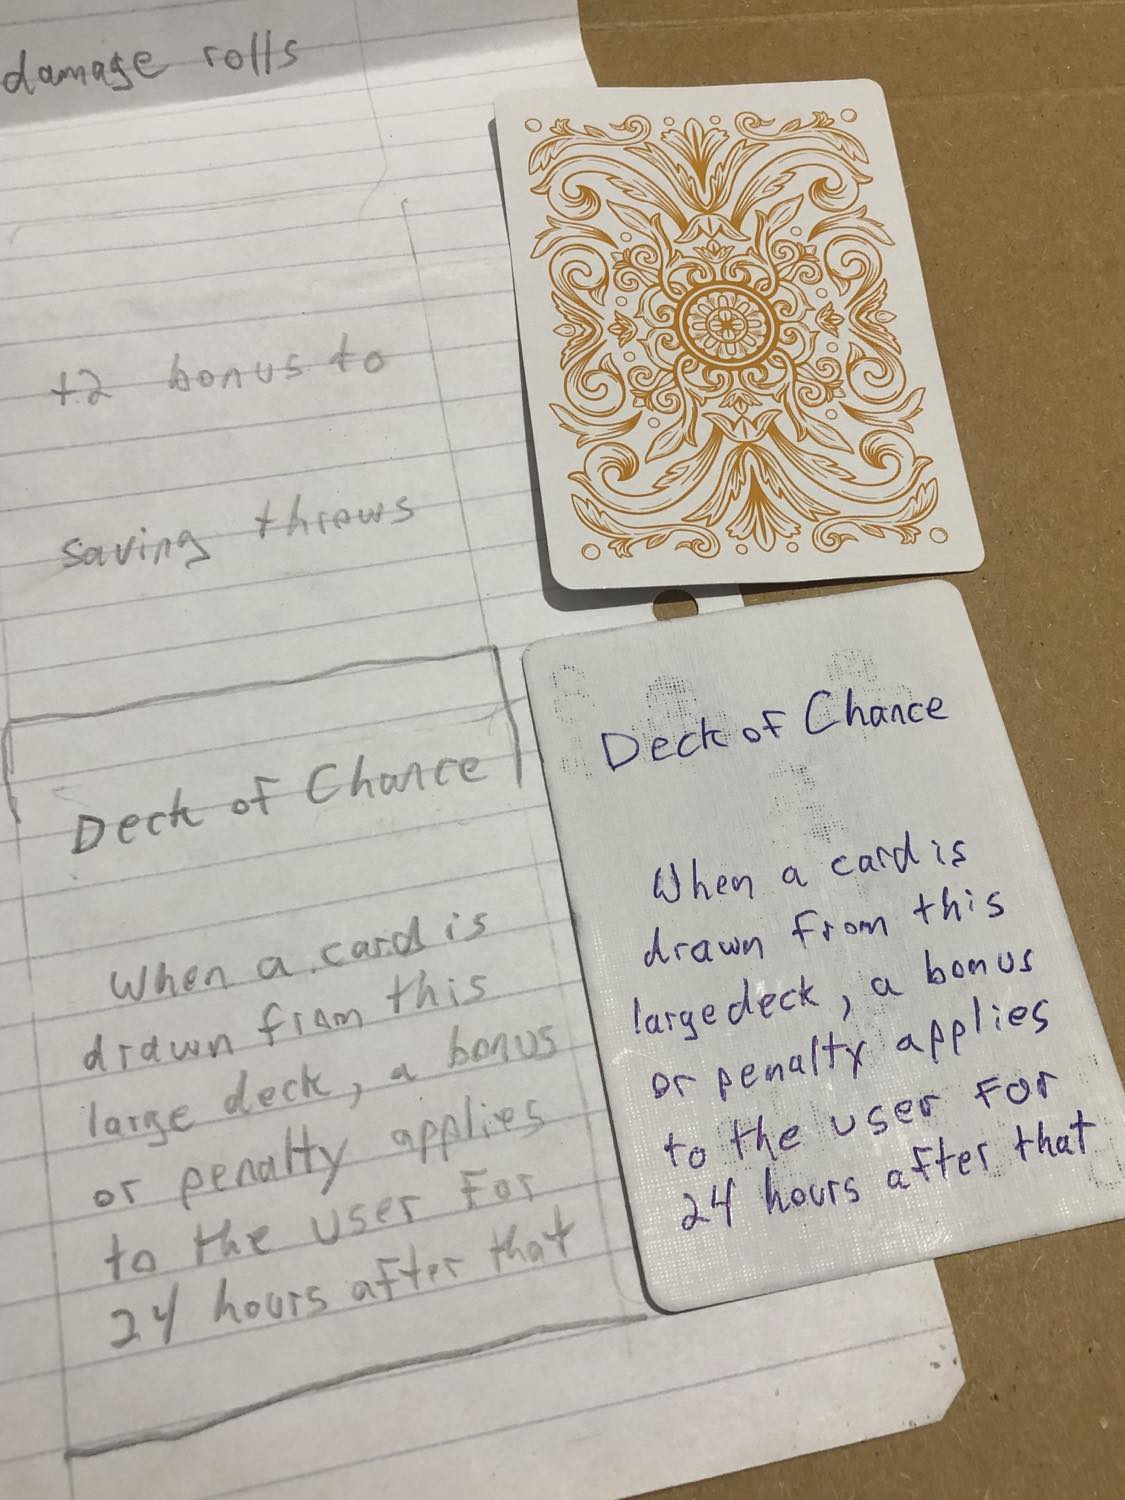 damage rolls
+2 bonus to
saving throws
Deck of Chance
When a card is
drawn from this
large deck, a bonus
or penalty applies
to the user for
24 hours after that
Deck of Chance
When a card is
drawn from this
large deck, a bonus
or penalty applies
to the user for
24 hours after that